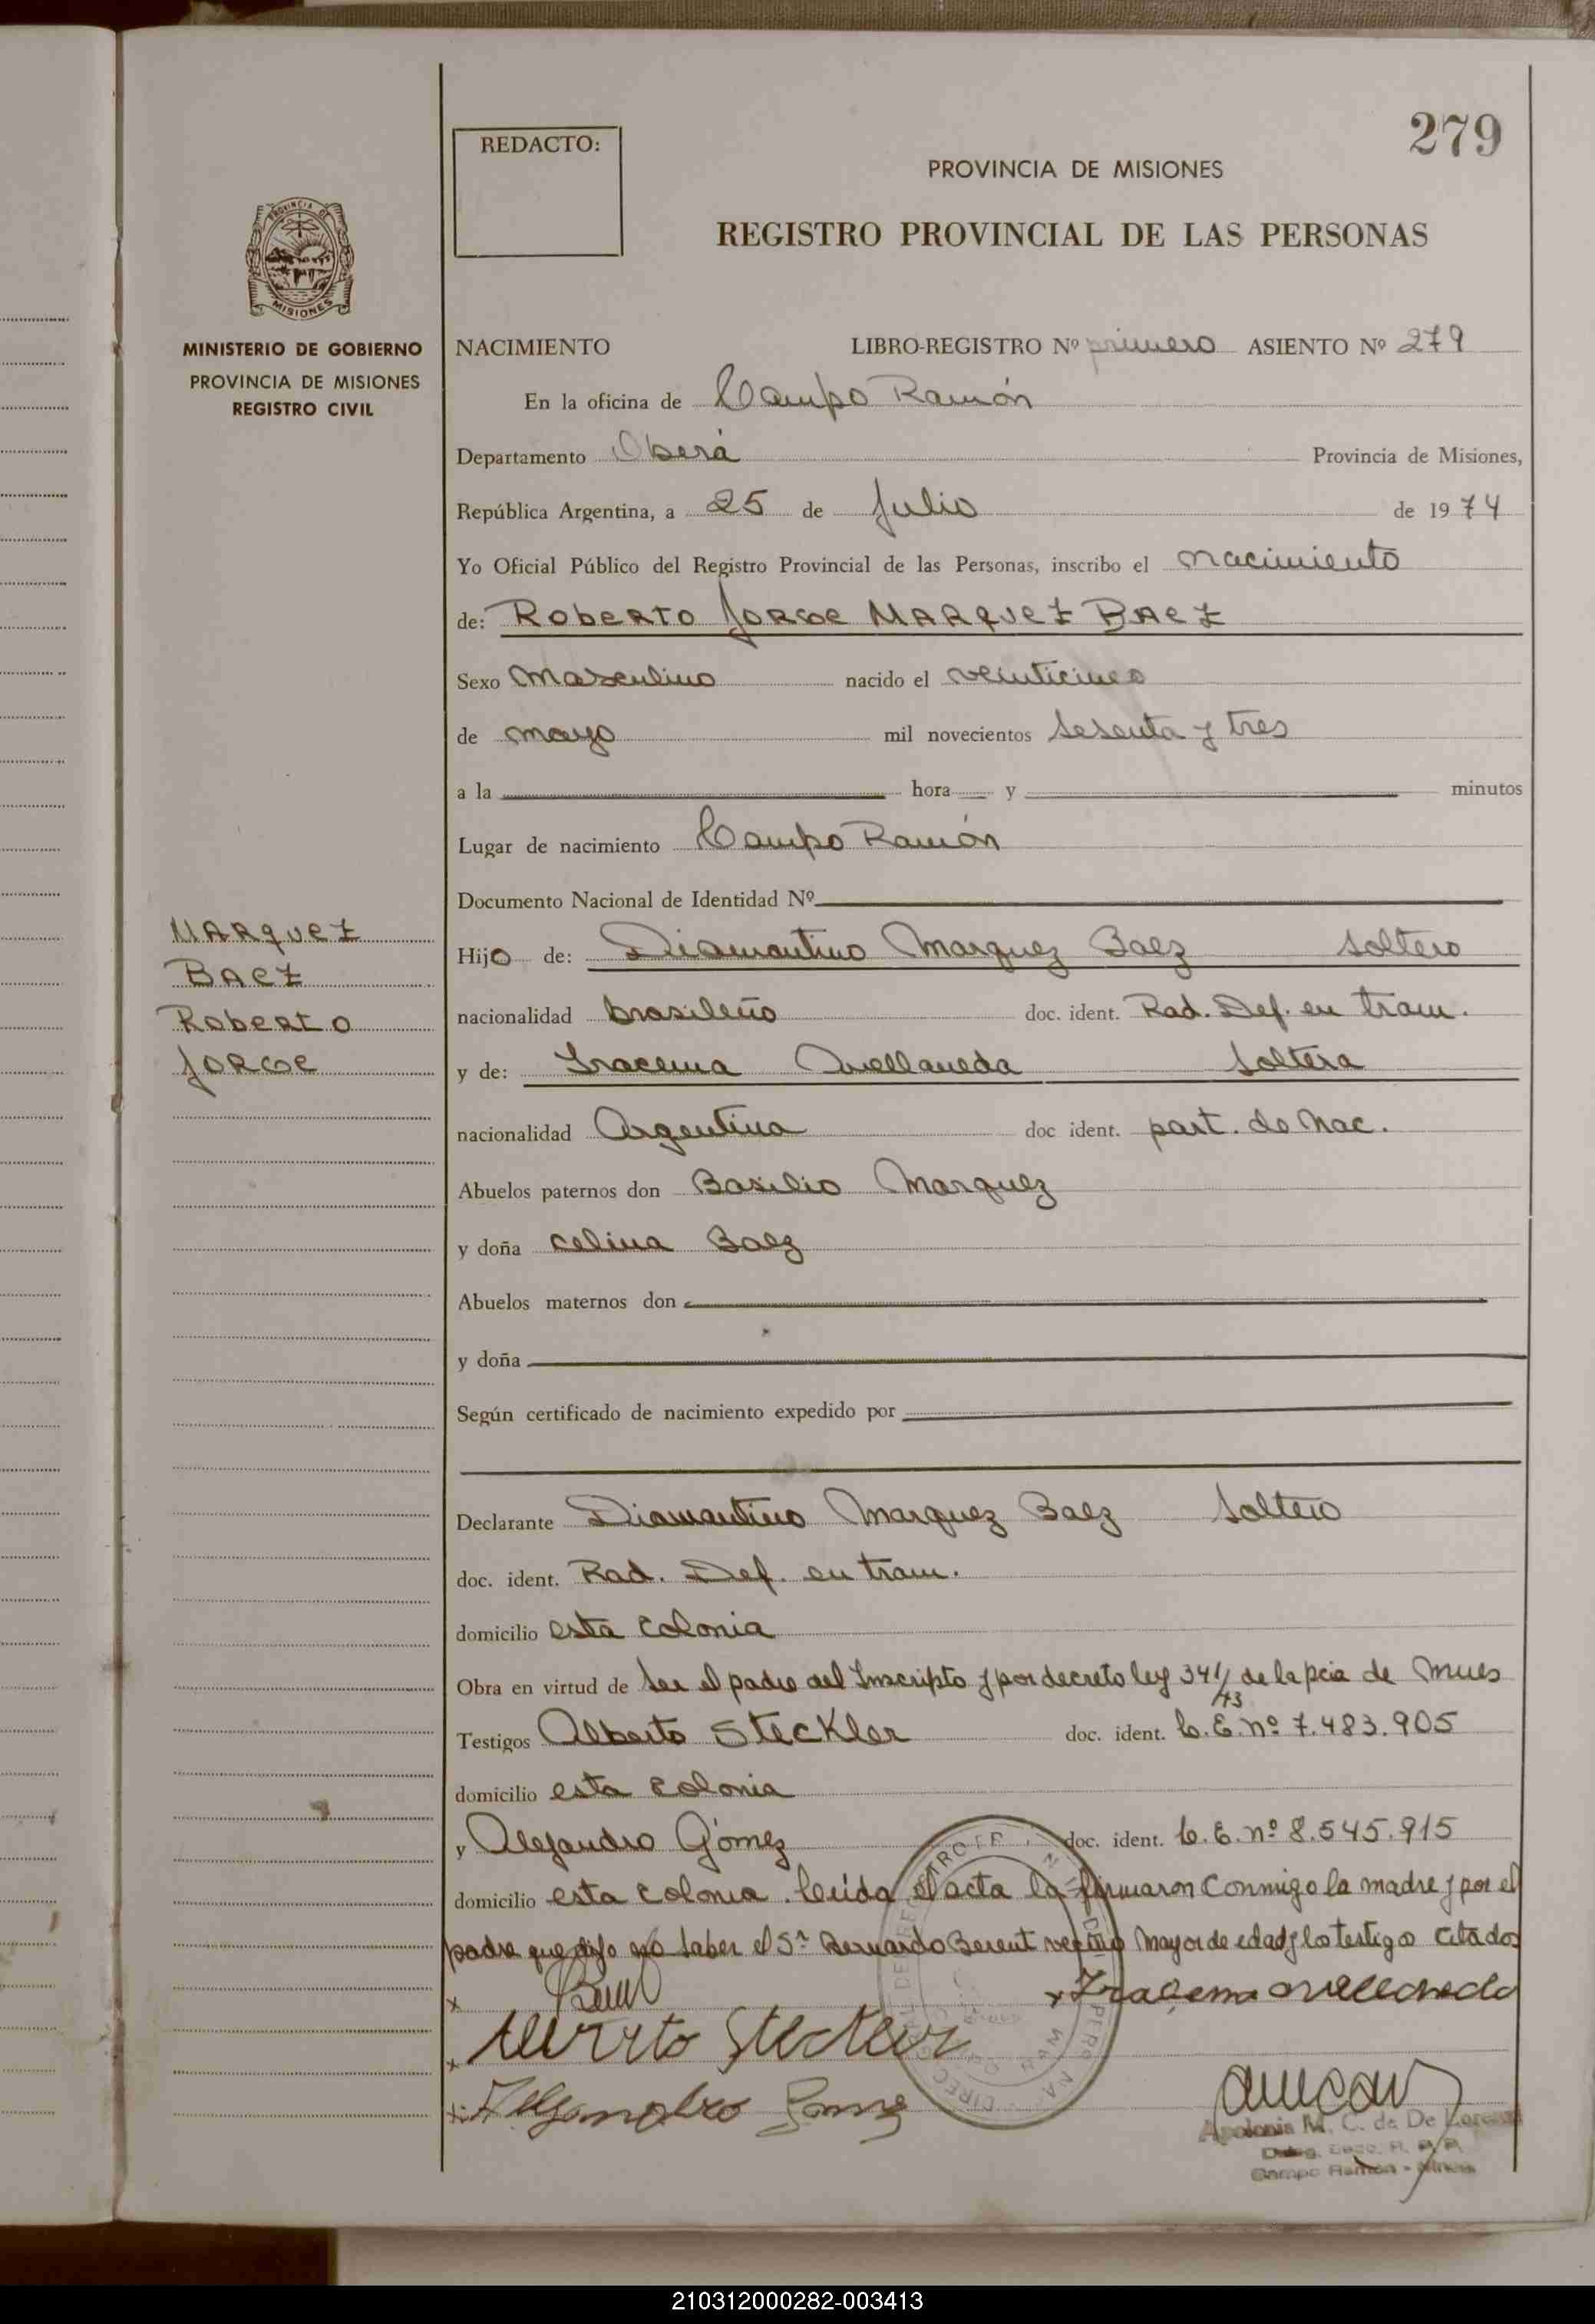 279
REDACTO:
PROVINCIA DE MISIONES
REGISTRO PROVINCIAL DE LAS PERSONAS
PROVINCIA DE
MISIONES
MINISTERIO DE GOBIERNO
PROVINCIA DE MISIONES
REGISTRO CIVIL
NACIMIENTO LIBRO-REGISTRO Nº primero ASIENTO Nº 279
En la oficina de Campo Ramón
Departamento Oberá Provincia de Misiones,
República Argentina, a 25 de Julio de 1974
Yo Oficial Público del Registro Provincial de las Personas, inscribo el nacimiento
de: Roberto Jorge MARQUEZ BAEZ
Sexo Masculino nacido el veinticinco
de mayo mil novecientos sesenta y tres
a la hora y minutos
Lugar de nacimiento Campo Ramón
Documento Nacional de Identidad Nº
MARQUEZ
BAEZ
Roberto
Jorge
Hijo de: Diamantino Marquez Baez soltero
nacionalidad brasileño doc. ident. Rad. Def. en tram.
y de: Iracema Avellaneda soltera
nacionalidad Argentina doc ident. part. de Nac.
Abuelos paternos don Basilio Marquez
y doña Celina Baez
Abuelos maternos don
y doña
Según certificado de nacimiento expedido por
Declarante Diamantino Marquez Baez soltero
doc. ident. Rad. Def. en tram.
domicilio esta colonia
Obra en virtud de ser el padre del Inscripto y por decreto ley 341/43 de la pcia de Mnes
Testigos Alberto Steckler doc. ident. L.E. nº 7.483.905
domicilio esta colonia
y Alejandro Gómez doc. ident. L.E. nº 8.545.915
domicilio esta colonia. Leída el acta la firmaron conmigo la madre y por el
padre que dijo no saber el Sr. Bernardo Berent vecino mayor de edad y los testigos citados
x x Iracema avellaneda
x Alberto Steckler
x Alejandro Gomez
Apolonia M. C. de De Lorenzi
Campo Ramón - Mnes
210312000282-003413